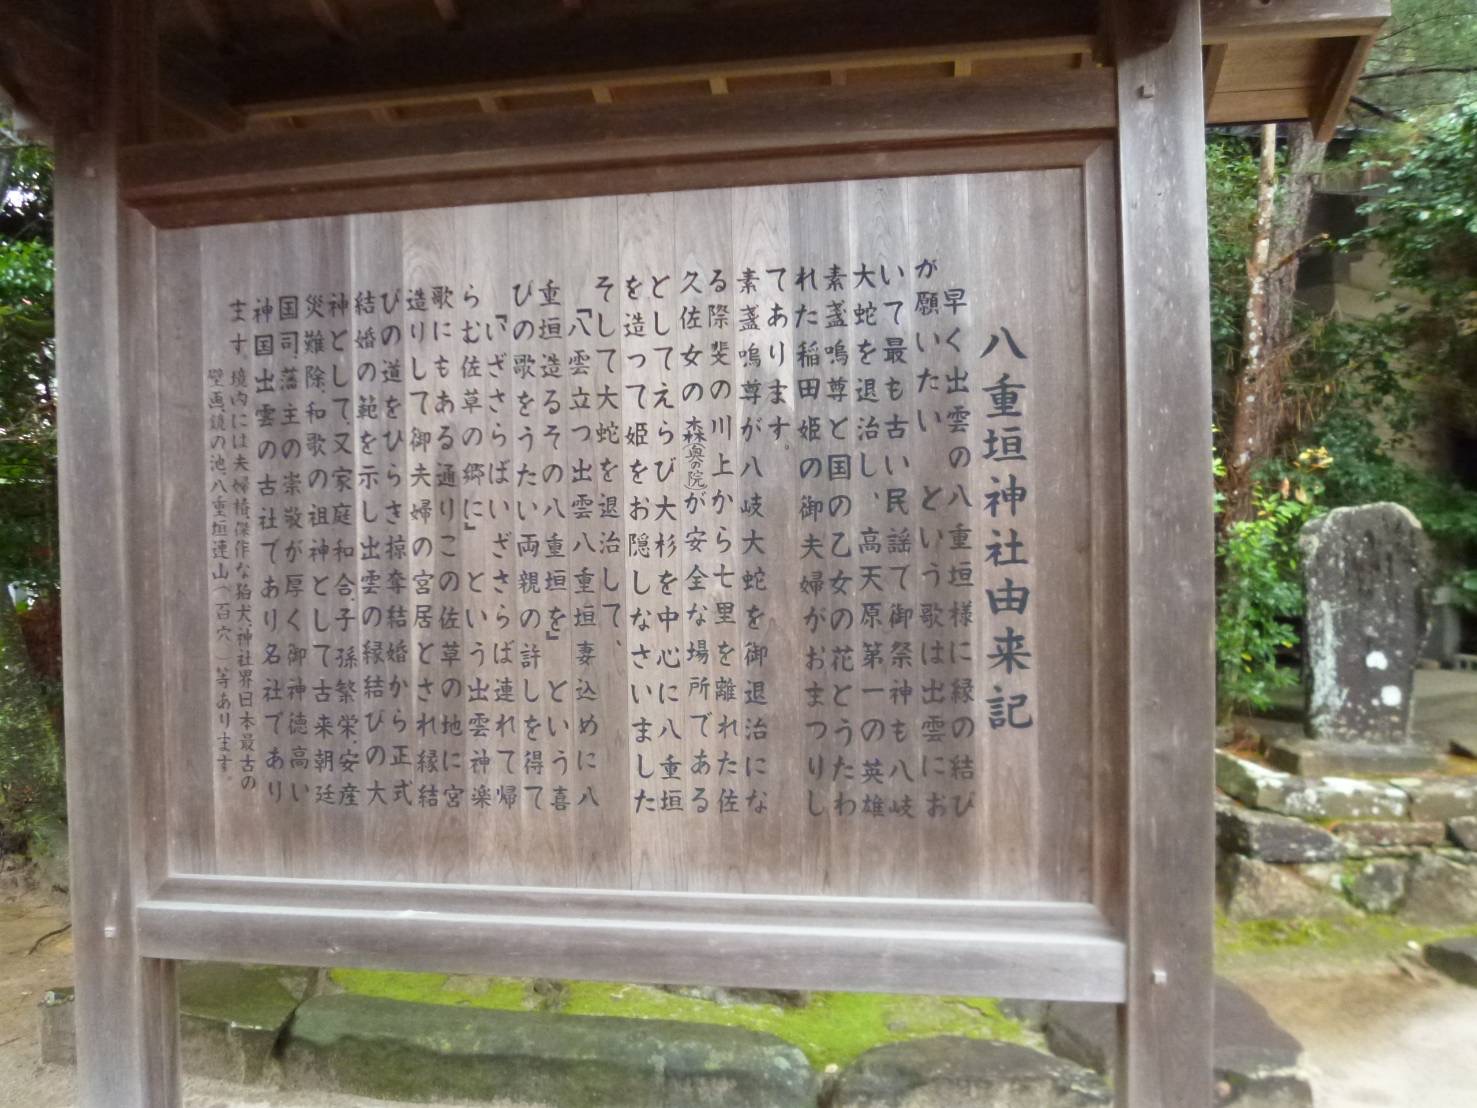 八重垣神社由来記
早く出雲の八重垣様に縁の結び
が願いたい という歌は出雲にお
いて最も古い民謡で御祭神も八岐
大蛇を退治し、高天原第一の英雄
素盞嗚尊と国の乙女の花とうたわ
れた稲田姫の御夫婦がおまつりし
てあります。
素盞嗚尊が八岐大蛇を御退治にな
る際斐の川上から七里を離れた佐
久佐女の森(奥の院)が安全な場所である
としてえらび大杉を中心に八重垣
を造って姫をお隠しなさいました
そして大蛇を退治して、
「八雲立つ出雲八重垣妻込めに八
重垣造るその八重垣を」という喜
びの歌をうたい両親の許しを得て
「いざさらばいざさらば連れて帰
らむ佐草の郷に」という出雲神楽
歌にもある通りこの佐草の地に宮
造りして御夫婦の宮居とされ縁結
びの道をひらき掠奪結婚から正式
結婚の範を示し出雲の縁結びの大
神として、又家庭和合、子孫繁栄、安産
災難除、和歌の祖神として古来朝廷
国司、藩主の崇敬が厚く御神徳高い
神国出雲の古社であり名社であり
ます、境内には夫婦椿傑作な狛犬、神社界日本最古の
壁画鏡の池八重垣連山(百穴)等あります。